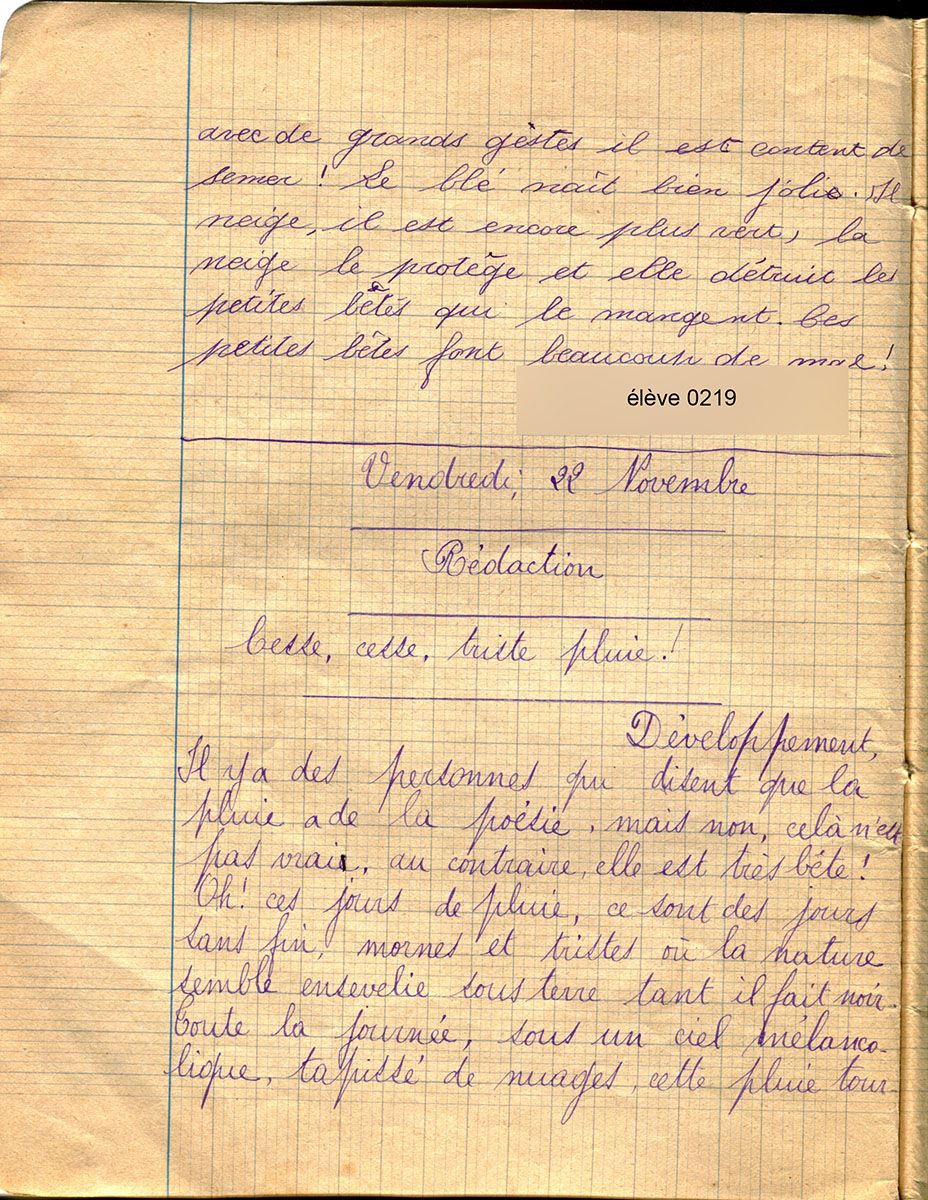 avec de grands gèstes il est content de
semer ! Le blé naît bien jolie. Il
neige, il est encore plus vert, la
neige le protège et elle détruit les
petites bêtes qui le mangent. Ces
petites bêtes font beaucoup de mal !
élève 0219
Vendredi, 22 Novembre
Rédaction
Cesse, cesse, triste pluie !
Développement,
Il y a des personnes qui disent que la
pluie a de la poésie, mais non, celà n'est
pas vrai, au contraire, elle est très bête !
Oh ! ces jours de pluie, ce sont des jours
sans fin, mornes et tristes où la nature
semble ensevelie sous terre tant il fait noir.
Toute la journée, sous un ciel mélanco-
lique, tapissé de nuages, cette pluie tour-